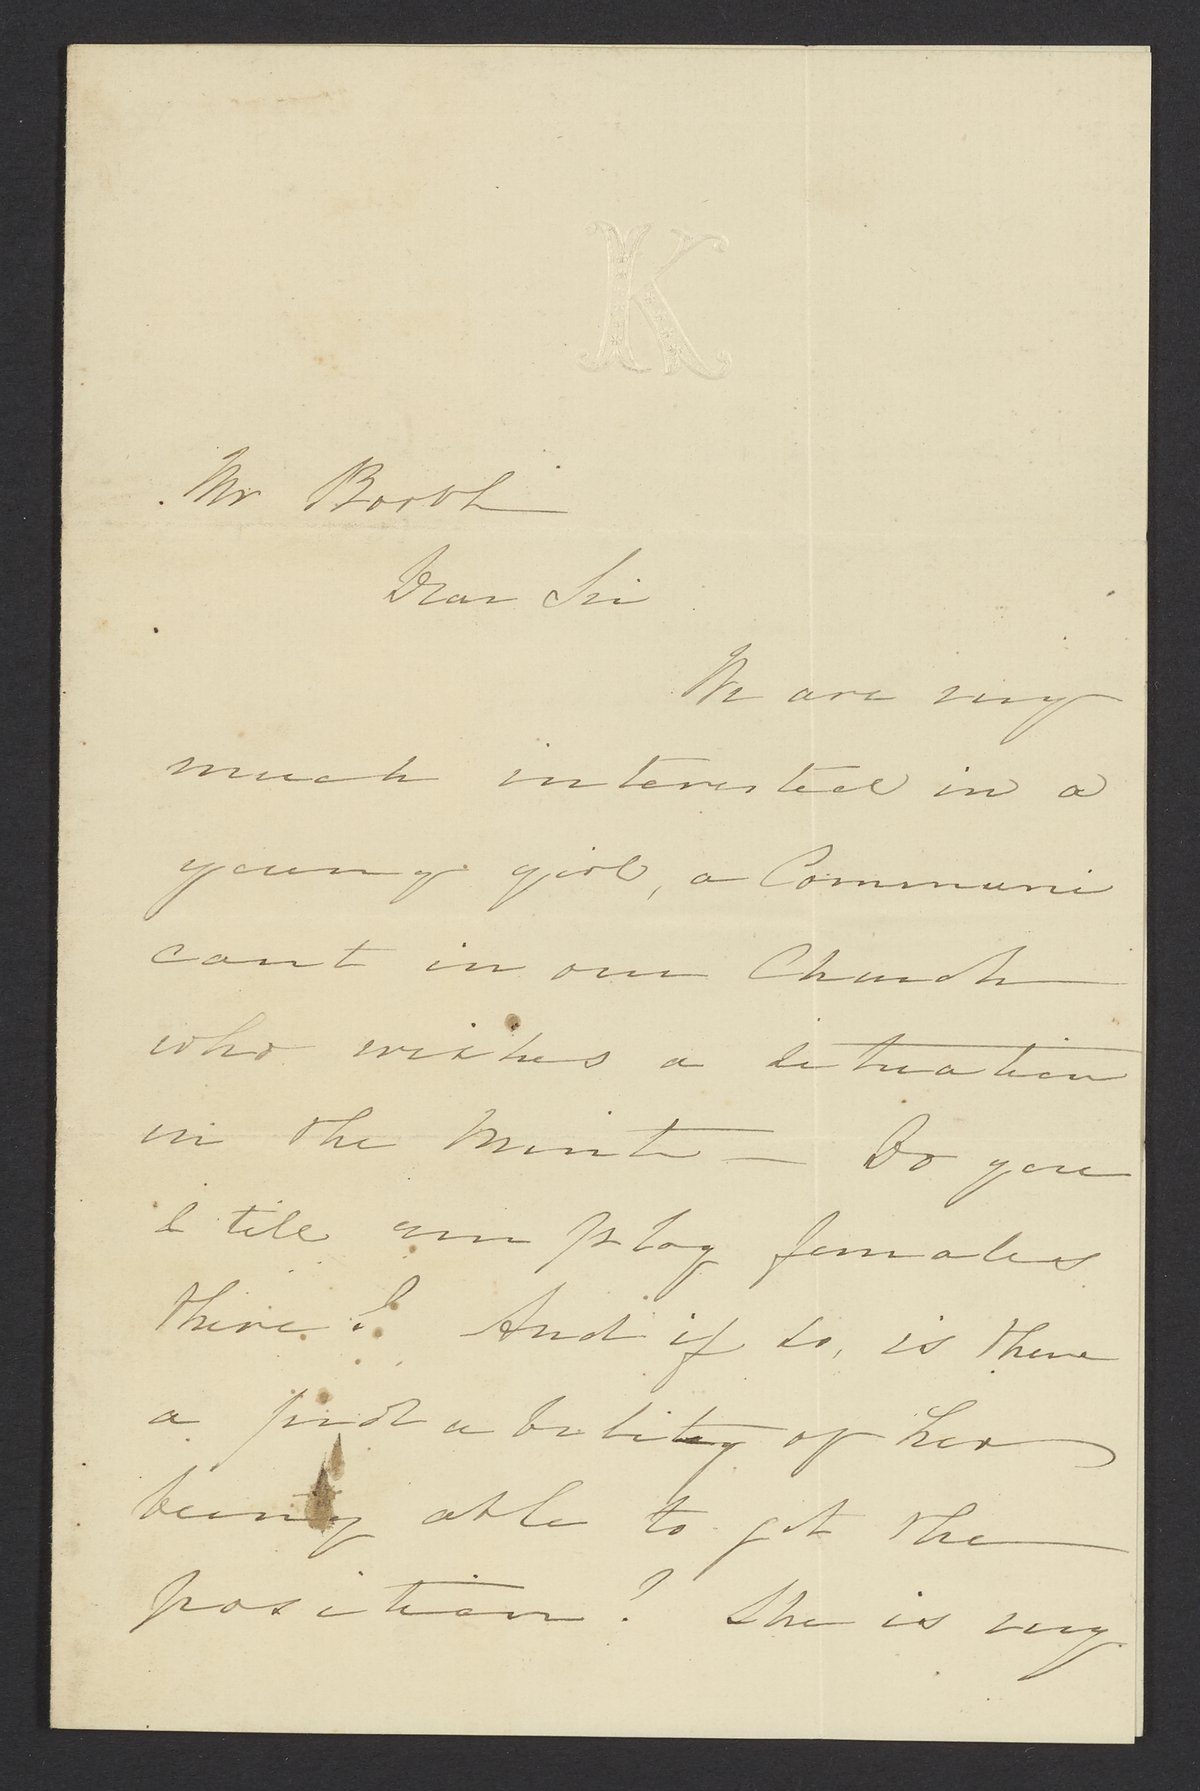 K
Mr Booth
Dear Sir
We are very
much interested in a
young girl, a Communi
cant in our Church
who wishes a situation
in the Mint — Do you
still employ females
there? And if so, is there
a probability of her
being able to get the
position? She is very